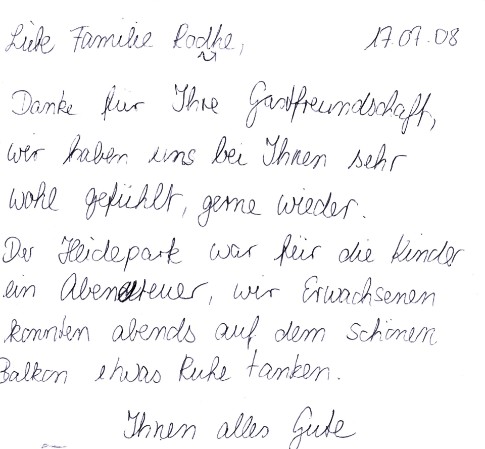 Liebe Familie Rodhe, 17.07.08
Danke für Ihre Gastfreundschaft,
wir haben uns bei Ihnen sehr
wohl gefühlt, gerne wieder.
Der Heidepark war für die Kinder
ein Abenteuer, wir Erwachsenen
konnten abends auf dem schönen
Balkon etwas Ruhe tanken.
Ihnen alles Gute